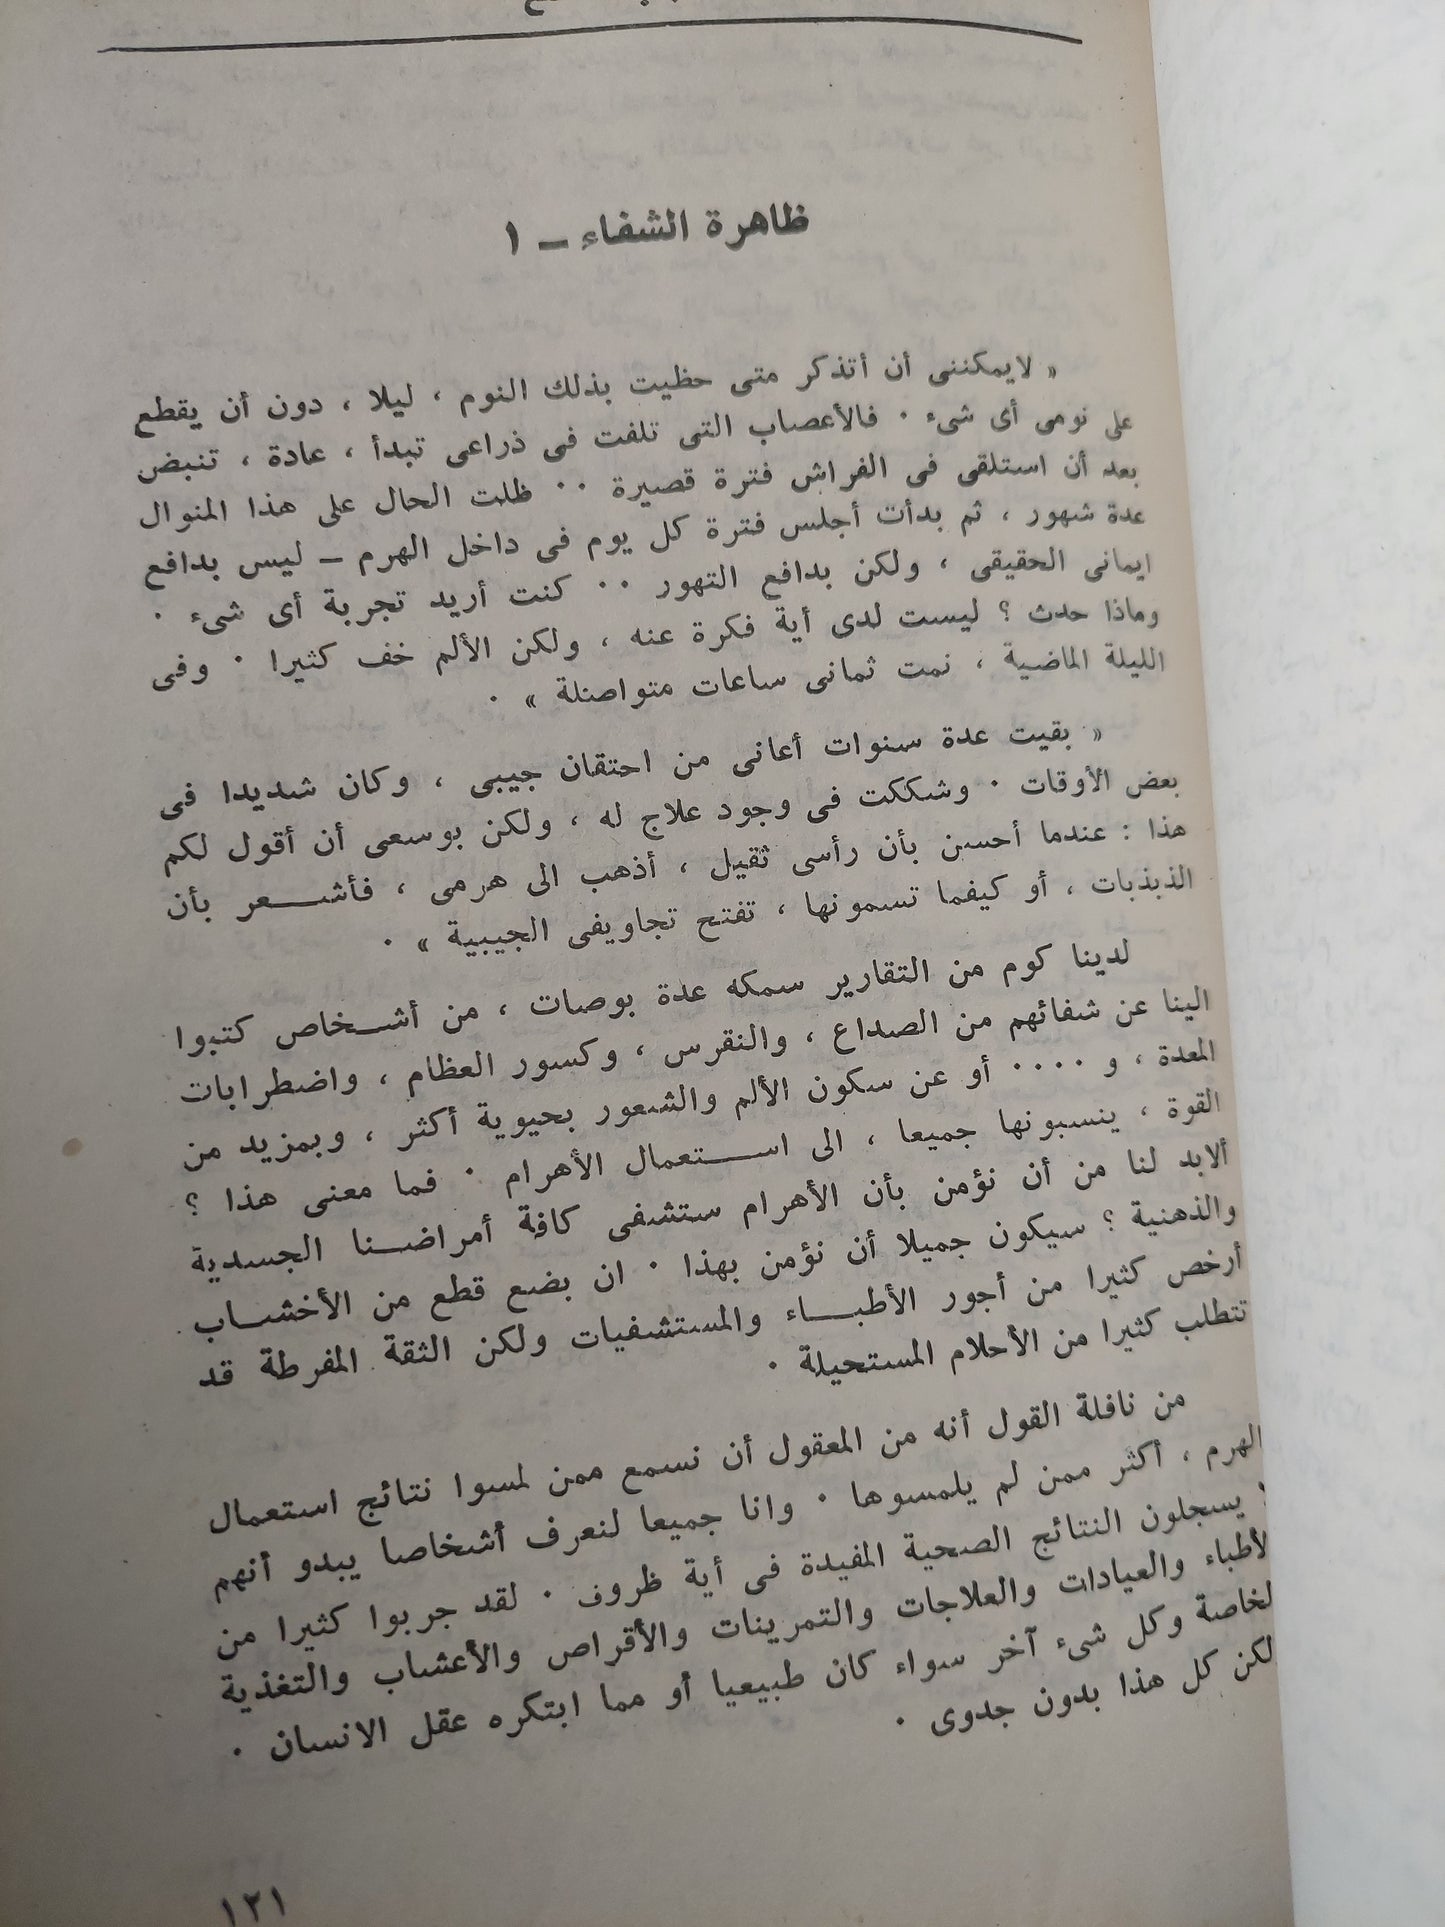 ظاهرة الشفاء ـ ١
« لايمكننى أن أتذكر متى حظيت بذلك النوم ، ليلا ، دون أن يقطع
على نومى أى شىء ٠ فالأعصاب التى تلفت فى ذراعى تبدأ ، عادة ، تنبض
بعد أن استلقى فى الفراش فترة قصيرة ٠٠ ظلت الحال على هذا المنوال
عدة شهور ، ثم بدأت أجلس فترة كل يوم فى داخل الهرم ـ ليس بدافع
ايمانى الحقيقى ، ولكن بدافع التهور ٠٠ كنت أريد تجربة أى شىء ٠
وماذا حدث ؟ ليست لدى أية فكرة عنه ، ولكن الألم خف كثيرا ٠ وفى
الليلة الماضية ، نمت ثمانى ساعات متواصلة » ٠
« بقيت عدة سنوات أعانى من احتقان جيبى ، وكان شديدا فى
بعض الأوقات ٠ وشككت فى وجود علاج له ، ولكن بوسعى أن أقول لكم
هذا : عندما أحسن بأن رأسى ثقيل ، أذهب الى هرمى ، فأشعر بأن
الذبذبات ، أو كيفما تسمونها ، تفتح تجاويفى الجيبية » ٠
لدينا كوم من التقارير سمكه عدة بوصات ، من أشخاص كتبوا
الينا عن شفائهم من الصداع ، والنقرس ، وكسور العظام ، واضطرابات
المعدة ، و ٠٠٠٠ أو عن سكون الألم والشعور بحيوية أكثر ، وبمزيد من
القوة ، ينسبونها جميعا ، الى استعمال الأهرام ٠ فما معنى هذا ؟
ألابد لنا من أن نؤمن بأن الأهرام ستشفى كافة أمراضنا الجسدية
والذهنية ؟ سيكون جميلا أن نؤمن بهذا ٠ ان بضع قطع من الأخشاب
أرخص كثيرا من أجور الأطباء والمستشفيات ولكن الثقة المفرطة قد
تتطلب كثيرا من الأحلام المستحيلة ٠
من نافلة القول أنه من المعقول أن نسمع ممن لمسوا نتائج استعمال
الهرم ، أكثر ممن لم يلمسوها ٠ وانا جميعا لنعرف أشخاصا يبدو أنهم
يسجلون النتائج الصحية المفيدة فى أية ظروف ٠ لقد جربوا كثيرا من
لأطباء والعيادات والعلاجات والتمرينات والأقراص والأعشاب والتغذية
لخاصة وكل شىء آخر سواء كان طبيعيا أو مما ابتكره عقل الانسان ٠
لكن كل هذا بدون جدوى ٠
١٢١